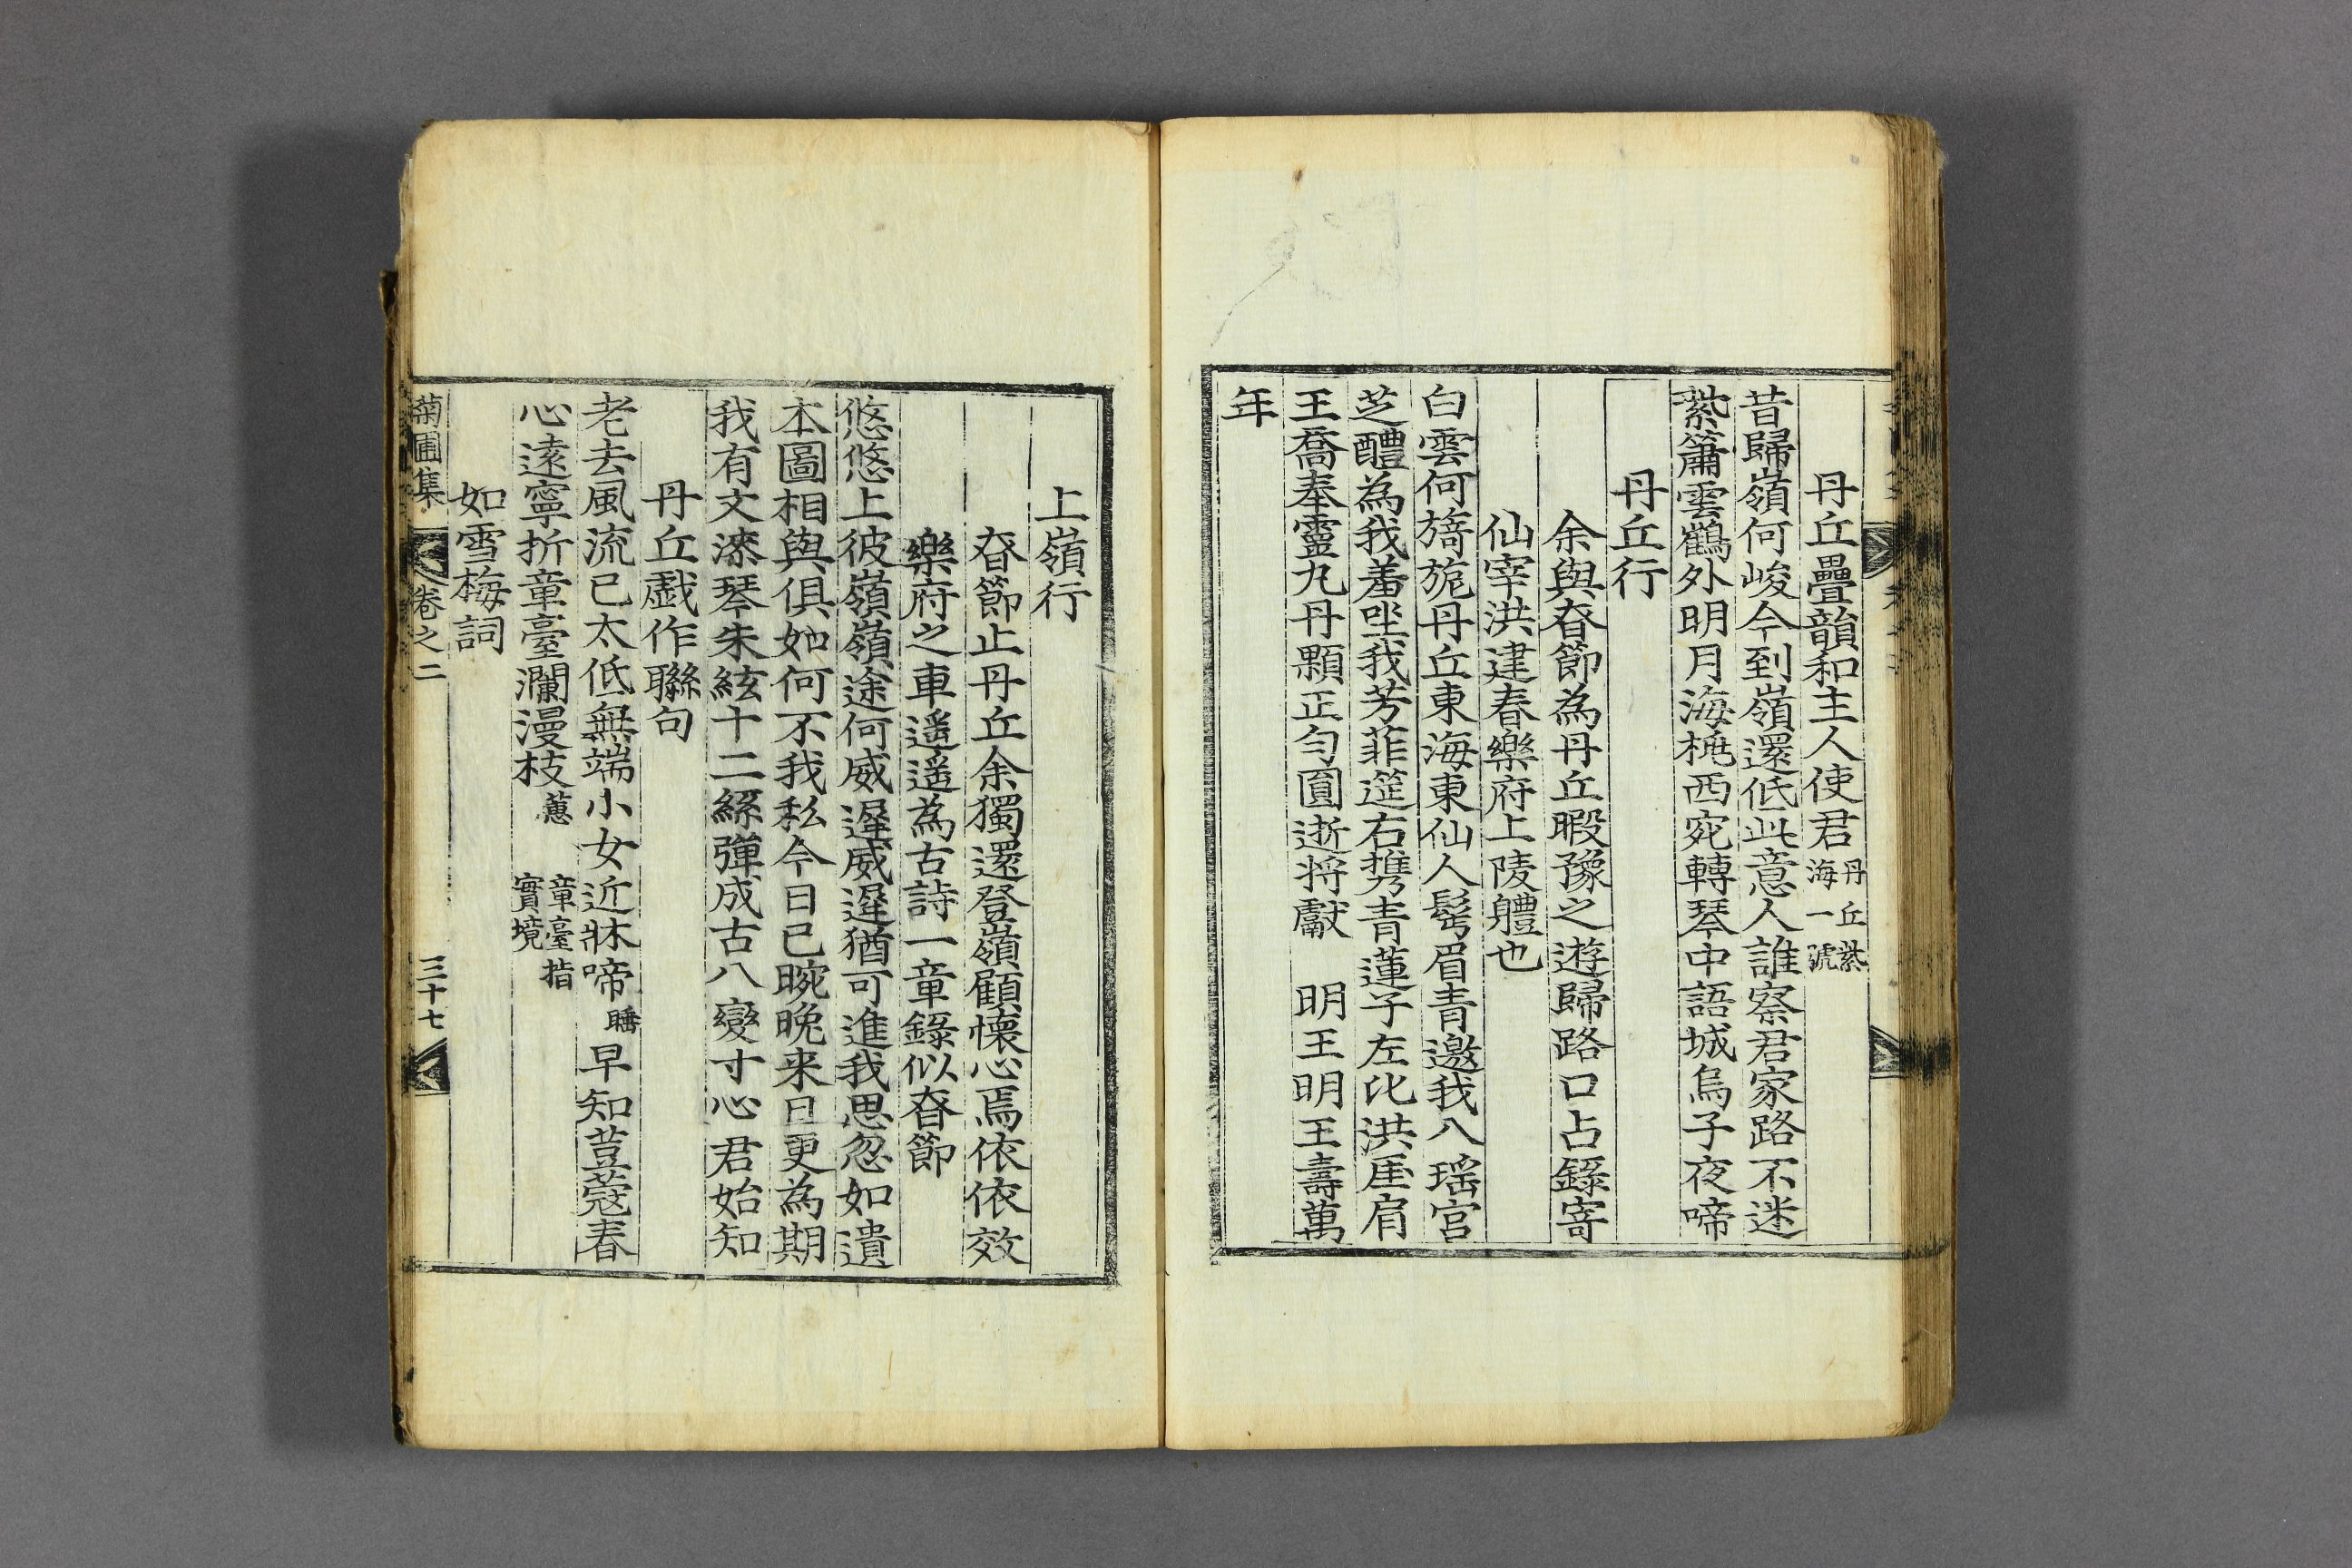 丹丘疊韻和主人使君丹丘紫海一號
昔歸嶺何峻今到嶺還低此意人誰察君家路不迷
紫簫雲鶴外明月海桃西宛轉琴中語城烏子夜啼
丹丘行
余與昚節為丹丘暇豫之遊歸路口占錄寄
仙宰洪建春樂府上陵軆也
白雲何旖旎丹丘東海東仙人髩眉青邀我八瑤宮
芝醴為我羞坐我芳菲筵右携青蓮子左比洪厓肩
王喬奉靈九丹顆正勻圓逝將獻 明王明王壽萬
年
上嶺行
昚節止丹丘余獨還登嶺顧懷心焉依依效
樂府之車遙遙為古詩一章錄似昚節
悠悠上彼嶺嶺途何威遲威遲猶可進我思忽如遺
本圖相與俱如何不我私今日已晼晚来日更為期
我有文漆琴朱絃十二絲彈成古八變寸心君始知
丹丘戱作聯句
老去風流已太低無端小女近牀啼疇早知荳蔲春
心遠寧折章臺瀾漫枝蕙 章臺指實境
如雪梅詞
菊圃集 卷之二 三十七